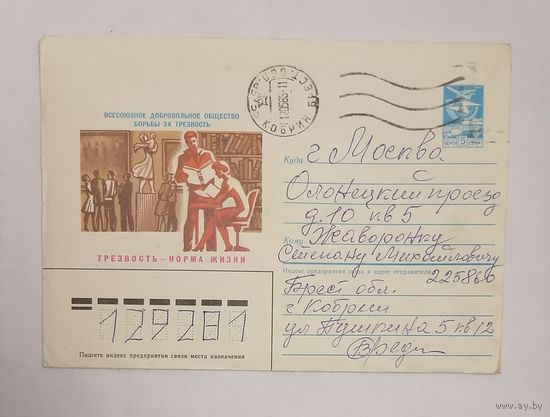 ВСЕСОЮЗНОЕ ДОБРОВОЛЬНОЕ ОБЩЕСТВО
БОРЬБЫ ЗА ТРЕЗВОСТЬ
ТРЕЗВОСТЬ – НОРМА ЖИЗНИ
КОБРИН
ПОЧТА 5 СССР
Куда г Москва
Олонецкий проезд
д. 10 кв 5
Кому Жаворонку
Степану Михайловичу
Индекс предприятия связи и адрес отправителя
225860
Брест обл.
г Кобрин
ул Пушкина 5 кв 12
129281
Пишите индекс предприятия связи места назначения
www.ay.by